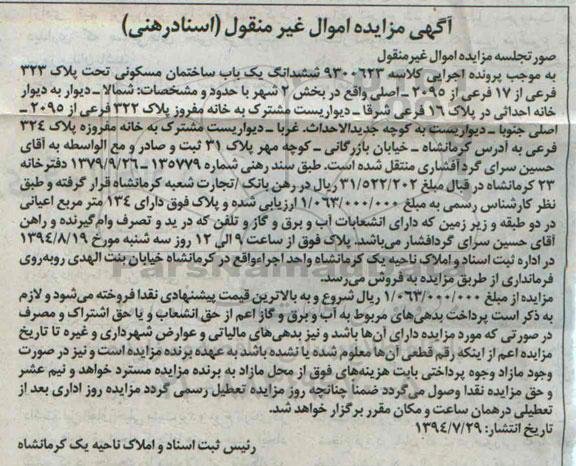 آگهی مزایده اموال غیر منقول (اسنادرهنی)
صورتجلسه مزایده اموال غیرمنقول
به موجب پرونده اجرایی کلاسه ۹۳۰۰۶۲۳ ششدانگ یک باب ساختمان مسکونی تحت پلاک ۳۲۳
فرعی از ۱۷ فرعی از ۲۰۹۵ - اصلی واقع در بخش ۲ شهر با حدود و مشخصات: شمالا - دیوار به دیوار
خانه احداثی در پلاک ۱۷ فرعی شرقا - دیواریست مشترک به خانه مفروز پلاک ۳۲۲ فرعی از ۲۰۹۵ -
اصلی جنوبا - دیواریست به کوچه جدیدالاحداث. غربا - دیواریست مشترک به خانه مفروزه پلاک ۳۲۴
فرعی به آدرس کرمانشاه - خیابان بازرگانی - کوچه مهر پلاک ۳۱ ثبت و صادر و مع الواسطه به آقای
حسین سرای گردافشاری منتقل شده است. طبق سند رهنی شماره ۱۳۵۷۷۹ - ۱۳۷۹/۹/۲۶ دفترخانه
۲۳ کرمانشاه در قبال مبلغ ۳۱/۵۲۲/۲۰۲ ریال در رهن بانک /تجارت شعبه کرمانشاه قرار گرفته و طبق
نظر کارشناس رسمی به مبلغ ۱/۰۶۳/۰۰۰/۰۰۰ ارزیابی شده و پلاک فوق دارای ۱۳۴ متر مربع اعیانی
در دو طبقه و زیر زمین که دارای انشعابات آب و برق و گاز و تلفن که در ید و تصرف وام‌گیرنده و راهن
آقای حسین سرای گردافشار می‌باشد. پلاک فوق از ساعت ۹ الی ۱۲ روز سه شنبه مورخ ۱۳۹۴/۸/۱۹
در اداره ثبت اسناد و املاک ناحیه یک کرمانشاه واحد اجراءواقع در کرمانشاه خیابان بنت الهدی روبه‌روی
فرمانداری از طریق مزایده به فروش می‌رسد.
مزایده از مبلغ ۱/۰۶۳/۰۰۰/۰۰۰ ریال شروع و به بالاترین قیمت پیشنهادی نقدا فروخته می‌شود و لازم
به ذکر است پرداخت بدهی‌های مربوط به آب و برق و گاز اعم از حق انشعاب و یا حق اشتراک و مصرف
در صورتی که مورد مزایده دارای آن‌ها باشد و نیز بدهی‌های مالیاتی و عوارض شهرداری و غیره تا تاریخ
مزایده اعم از اینکه رقم قطعی آن‌ها معلوم شده یا نشده باشد به عهده برنده مزایده است و نیز در صورت
وجود مازاد وجوه پرداختی بابت هزینه‌های فوق از محل مازاد به برنده مزایده مسترد خواهد و نیم عشر
و حق مزایده نقدا وصول می‌گردد ضمنا چنانچه روز مزایده تعطیل رسمی گردد مزایده روز اداری بعد از
تعطیلی درهمان ساعت و مکان مقرر برگزار خواهد شد.
تاریخ انتشار: ۱۳۹۴/۷/۲۹
رئیس ثبت اسناد و املاک ناحیه یک کرمانشاه